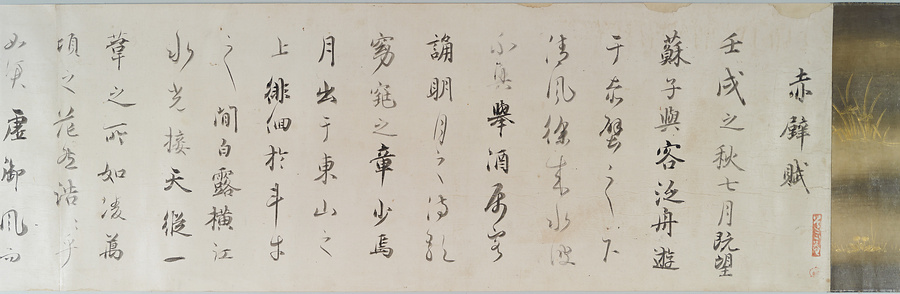 赤壁賦
壬戌之秋七月既望
蘇子與客泛舟遊
于赤壁之下
清風徐來水波
不興舉酒属客
誦明月之詩歌
窈窕之章少焉
月出于東山之
上徘徊於斗牛
之間白露橫江
水光接天縱一
葦之所如凌萬
頃之茫然浩〻乎
如馮虛御風而